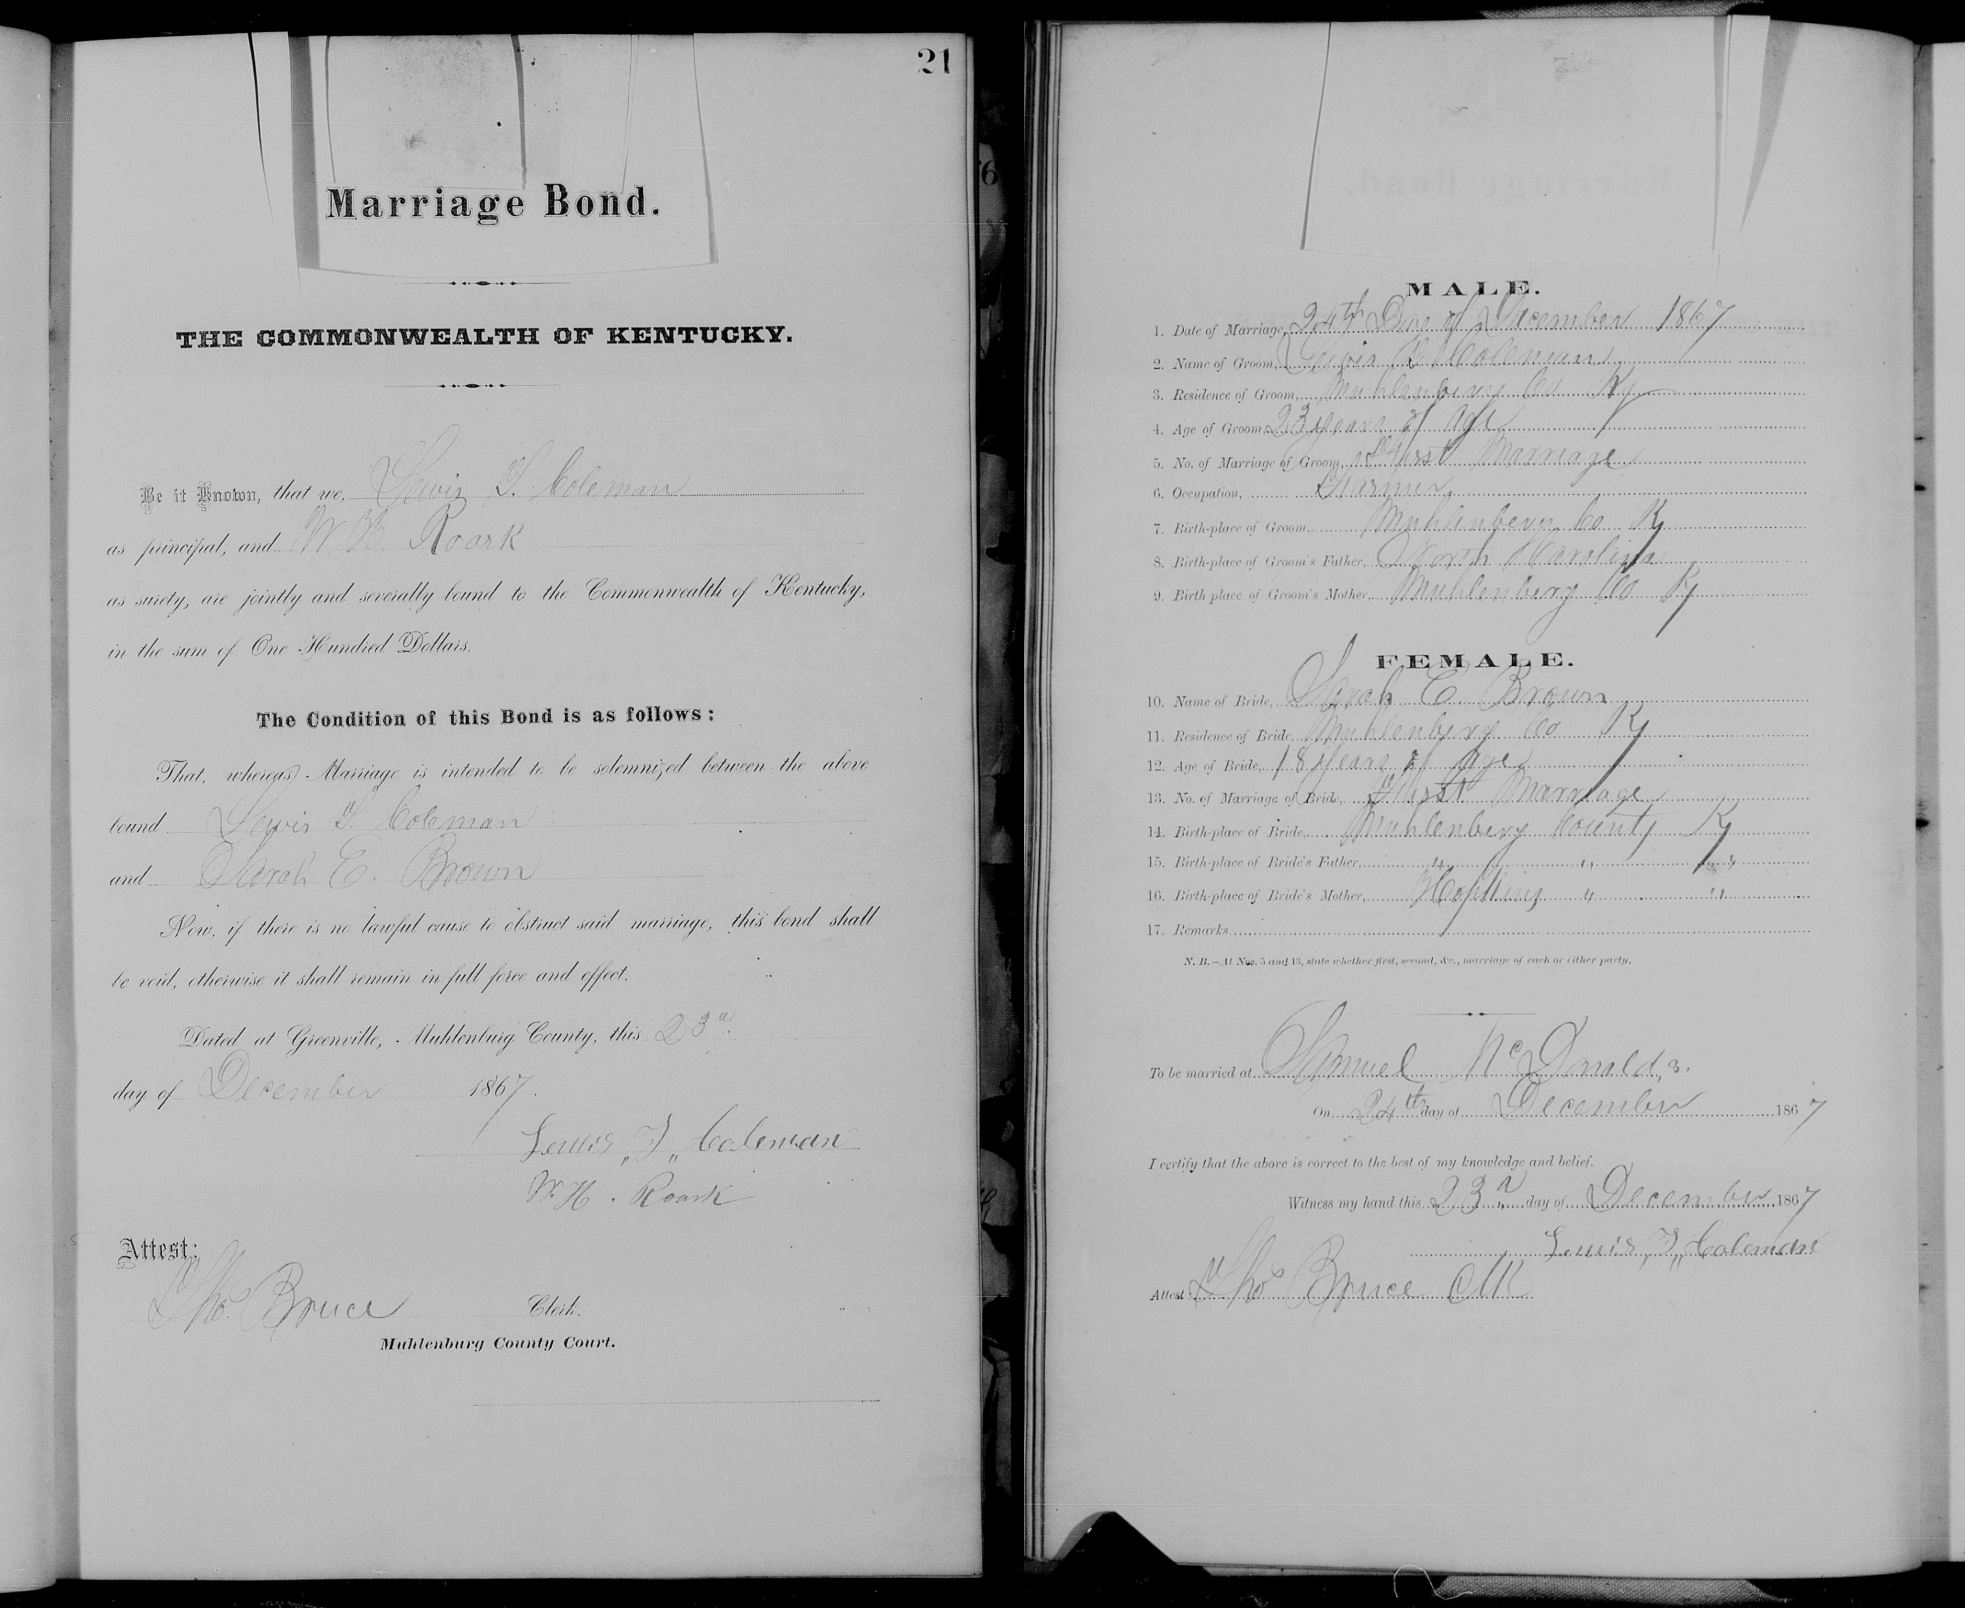 21
Marriage Bond.
THE COMMONWEALTH OF KENTUCKY.
Be it Known, that we, Lewis T. Coleman
as principal, and W. H. Roark
as surety, are jointly and severally bound to the Commonwealth of Kentucky,
in the sum of One Hundred Dollars.
The Condition of this Bond is as follows:
That, whereas Marriage is intended to be solemnized between the above
bound Lewis T. Coleman
and Sarah E. Brown
Now, if there is no lawful cause to obstruct said marriage, this bond shall
be void, otherwise it shall remain in full force and effect.
Dated at Greenville, Muhlenburg County, this 23d
day of December 1867.
Lewis "T" Coleman
W. H. Roark
Attest:
Tho. Bruce Clerk.
Muhlenburg County Court.
MALE.
1. Date of Marriage, 24th Day of December 1867
2. Name of Groom, Lewis T Coleman
3. Residence of Groom, Muhlenberg Co Ky
4. Age of Groom, 23 years of age
5. No. of Marriage of Groom, First Marriage
6. Occupation, Farmer
7. Birth-place of Groom, Muhlenberg Co Ky
8. Birth-place of Groom's Father, North Carolina
9. Birth-place of Groom's Mother, Muhlenberg Co Ky
FEMALE.
10. Name of Bride, Sarah E. Brown
11. Residence of Bride, Muhlenberg Co Ky
12. Age of Bride, 18 years of age
13. No. of Marriage of Bride, First Marriage
14. Birth-place of Bride, Muhlenberg County Ky
15. Birth-place of Bride's Father, " " "
16. Birth-place of Bride's Mother, Hopkins " "
17. Remarks
N. B.—At Nos. 5 and 13, state whether first, second, &c., marriage of each or either party.
To be married at Samuel McDonald,s.
On 24th day of December 1867
I certify that the above is correct to the best of my knowledge and belief.
Witness my hand this 23d day of December 1867
Lewis "T" Coleman
Attest Tho Bruce Clk